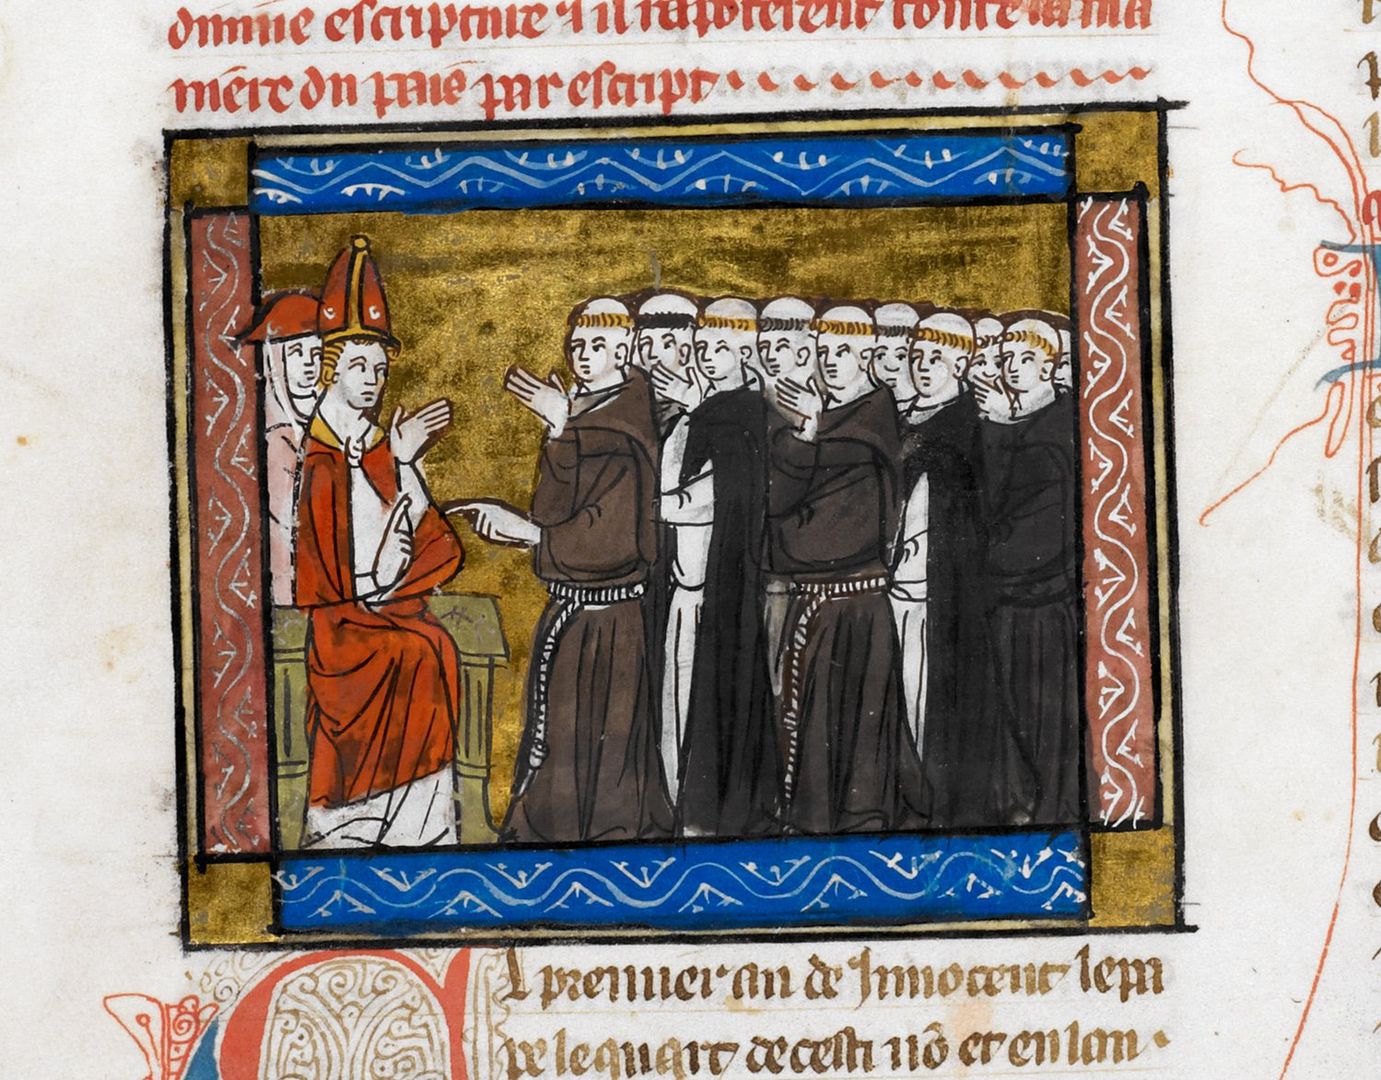 diuine escripture q il raporterent toute la ma
niere du païs par escript
El premier an de Innocent le pa
pe le quart de cesti nō et en lan